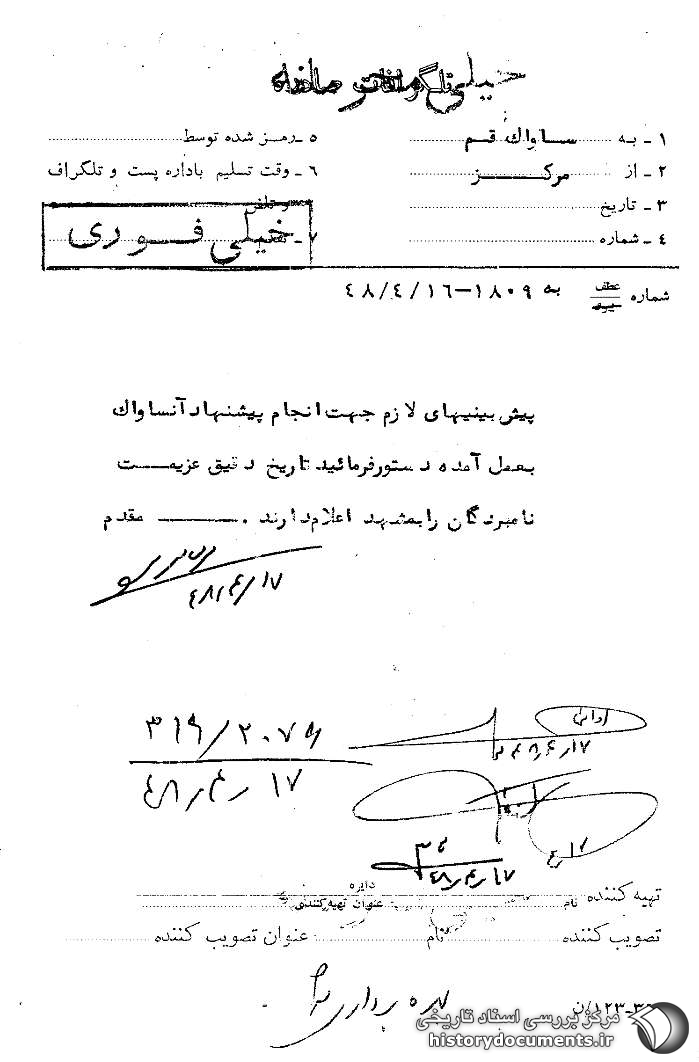 خیلی
۱ ـ به ساواك قم
۲ ـ از مرکز
۳ ـ تاریخ
۴ ـ شماره
۵ ـ رمز شده توسط
۶ ـ وقت تسلیم باداره پست و تلگراف
خیلی فوری
شماره عطف به ۱۸۰۹-۴۸/۴/۱۶
پیش بینیهای لازم جهت انجام پیشنهاد آنساواك
بعمل آمده دستور فرمائید تاریخ دقیق عزیمت
نامبردگان را بمشهد اعلام دارند . مقدم
۴۸/۴/۱۷
۳۱۶/۲۰۷۹
۴۸/۴/۱۷
۴۸/۴/۱۷
۴۸/۴/۱۷
تهیه کننده نام دایره عنوان تهیه کننده
تصویب کننده نام عنوان تصویب کننده
مرکز بررسی اسناد تاریخی
historydocuments.ir